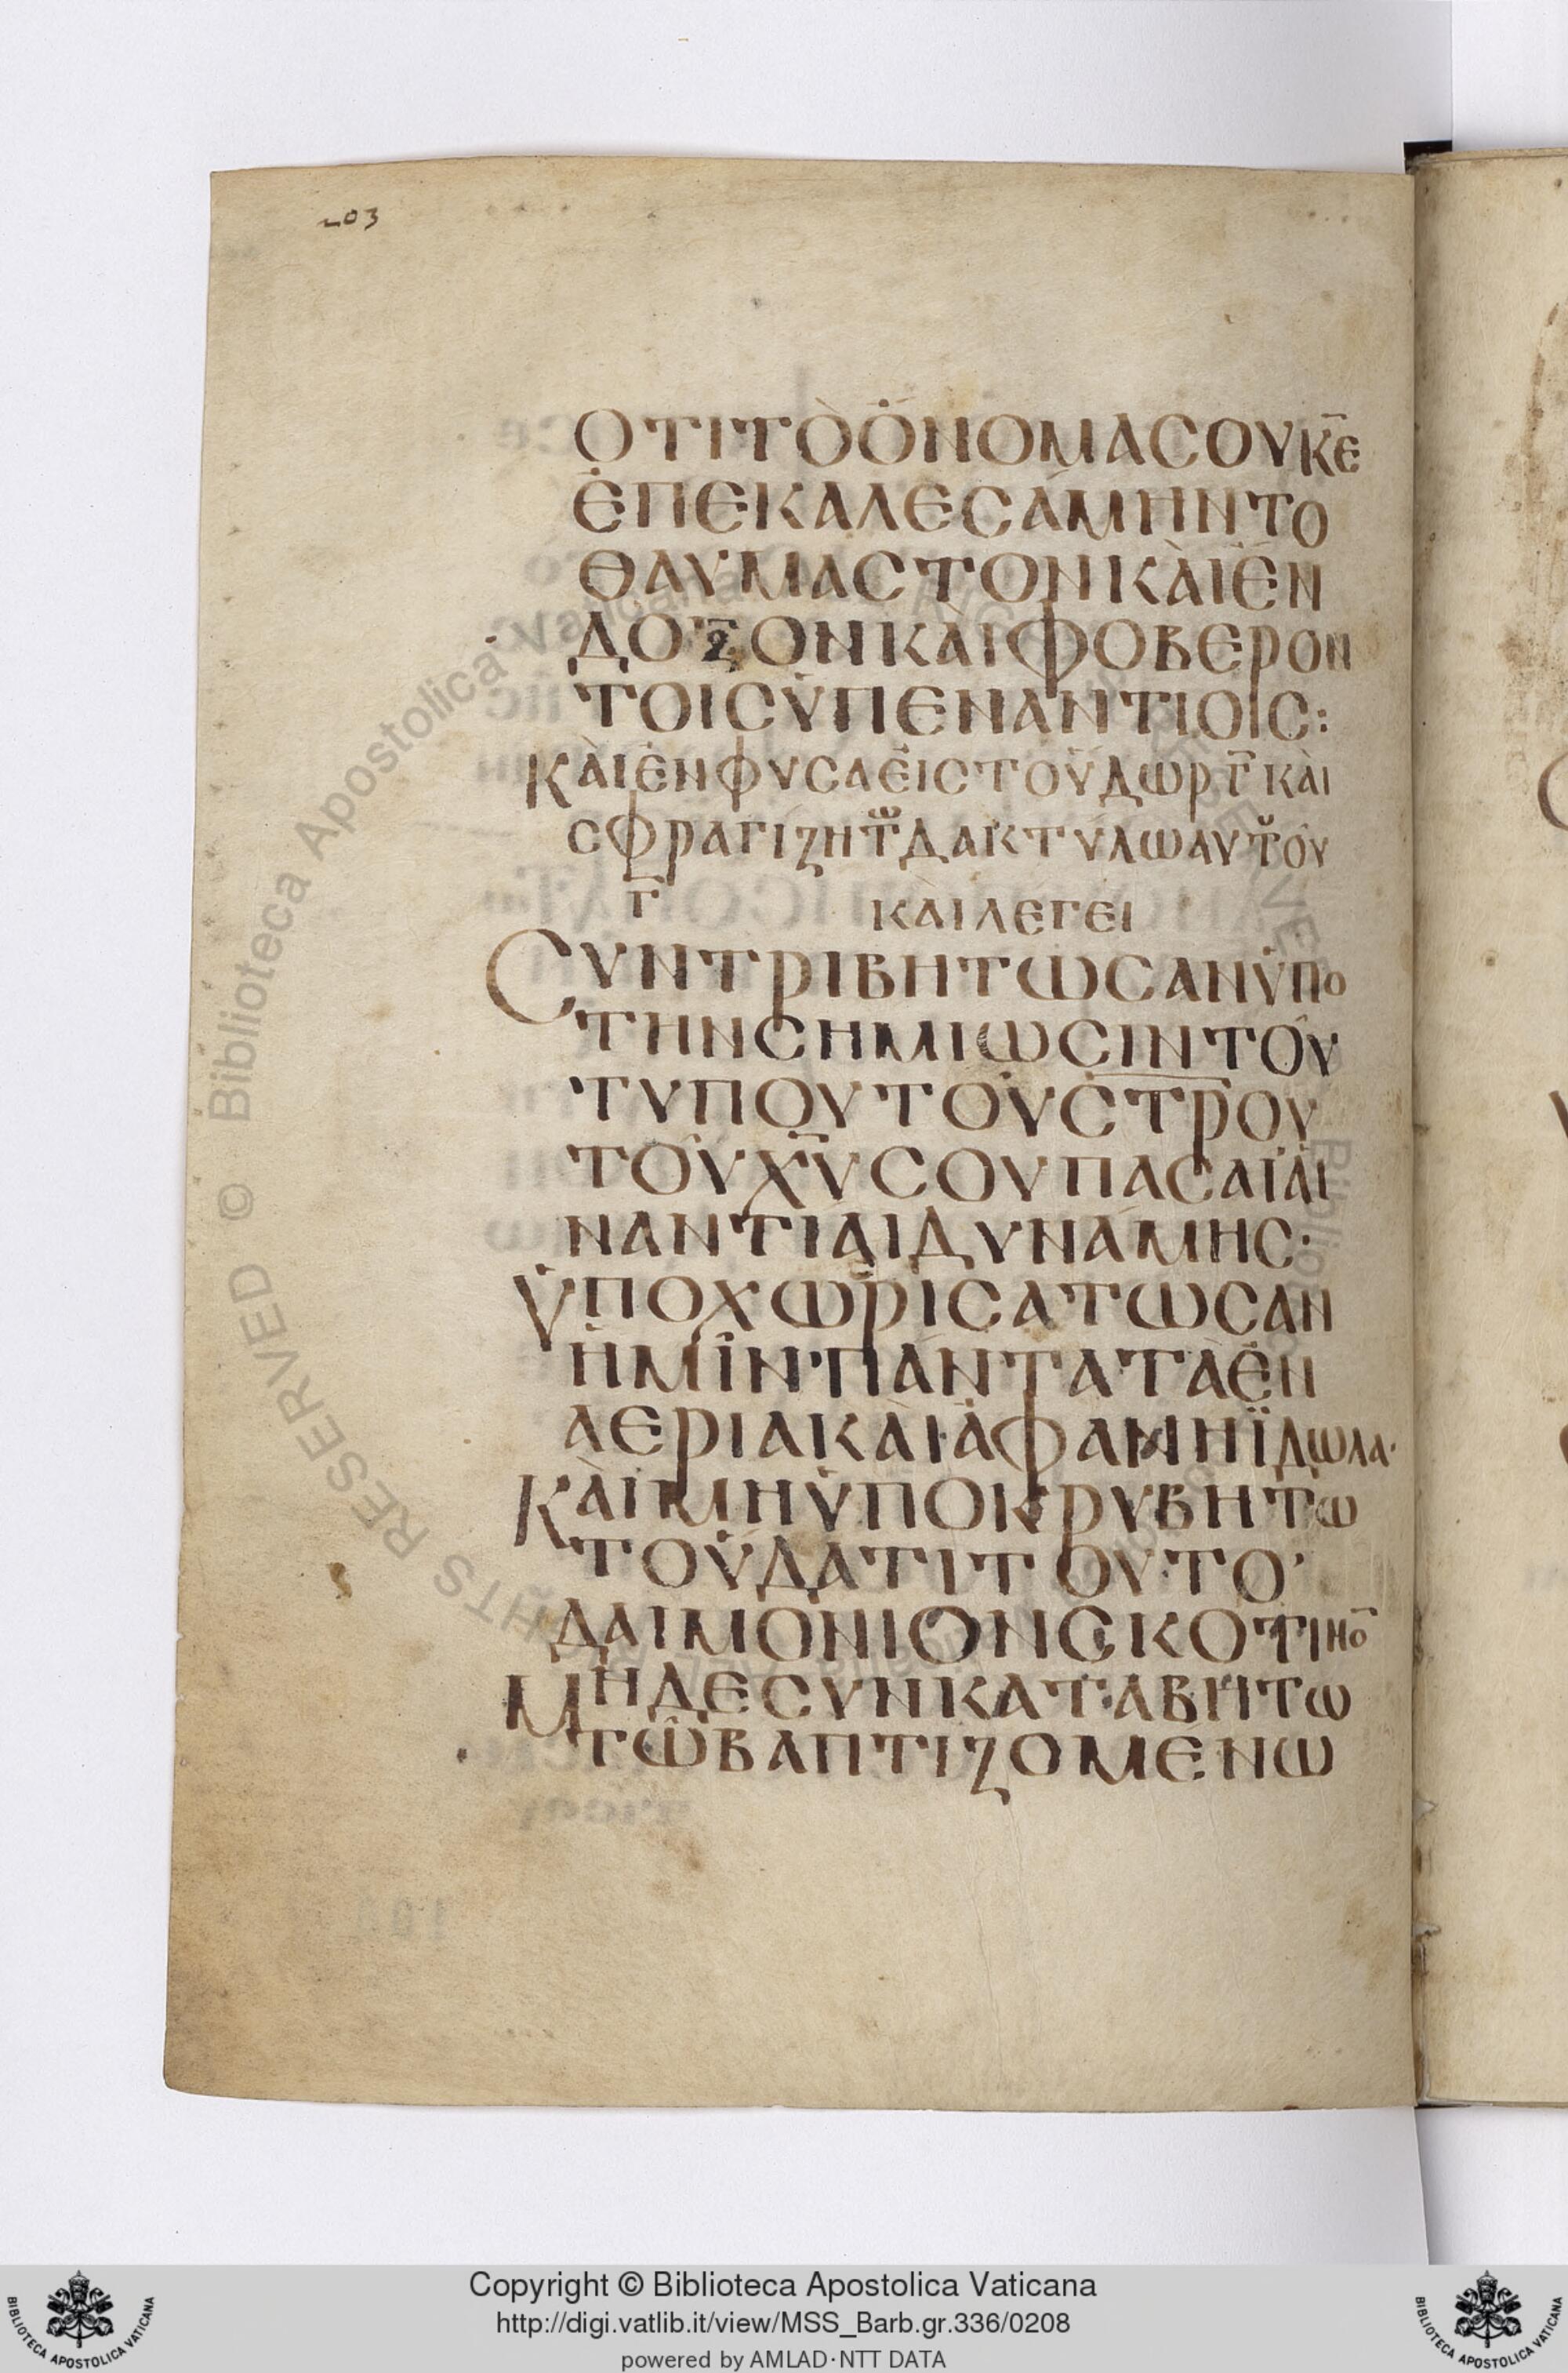 203
ΟΤΙΤῸὈΝΟΜΑΣΟΥΚ̅Ε
ἘΠΕΚΑΛΕΣΆΜΗΝΤΟ
ΘΑΥΜΑΣΤΟΝΚᾺΙἘΝ
ΔΟΞΟΝΚᾺΙΦΟΒΕΡΟΝ
ΤΟΙΣὙΠΕΝΑΝΤΙΟΙΣ:
ΚᾺΙἘΝΦΥΣΑἘΙΣΤΟὙΔΩΡΓ̅ΚᾺΙ
ΣΦΡΑΓΙΖΗΤῶΔΑΚΤΎΛΩΑΥΤΟΥ
Γ̅ ΚᾺΙΛΕΓΕΙ
ΣΥΝΤΡΙΒΗΤΩΣΑΝὙΠΟ
ΤΗΝΣΗΜΙΩΣΙΝΤΟΥ
ΤΥΠΟΥΤΟΥΣ̅Τ̅Ρ̅ΟΥ
ΤΟΥΧ̅Υ̅ΣΟΥΠΑΣΑΪΑΙ
ΝΑΝΤΙΑΙΔΥΝΑΜΗΣ·
ὙΠΟΧΩΡΙΣΑΤΩΣΑΝ
ἩΜΙΝΠΆΝΤΑΤΑἘΝ
ΑΕΡΙΑΚᾺΙἈΦΑΝΗΪΔΩΛΑ·
ΚᾺΙΜΗὙΠΟΚΡΥΒΗΤΩ
ΤΟὙΔΑΤΙΤΟΥΤΟ
ΔΑΙΜΟΝΙΟΝΣΚΟΤΙΝΟ̅
ΜΗΔΕΣΥΝΚΑΤΑΒΗΤΩ
ΤΩΒΑΠΤΙΖΟΜΕΝΩ
Copyright © Biblioteca Apostolica Vaticana
http://digi.vatlib.it/view/MSS_Barb.gr.336/0208
powered by AMLAD·NTT DATA
BIBLIOTECA APOSTOLICA VATICANA
BIBLIOTECA APOSTOLICA VATICANA